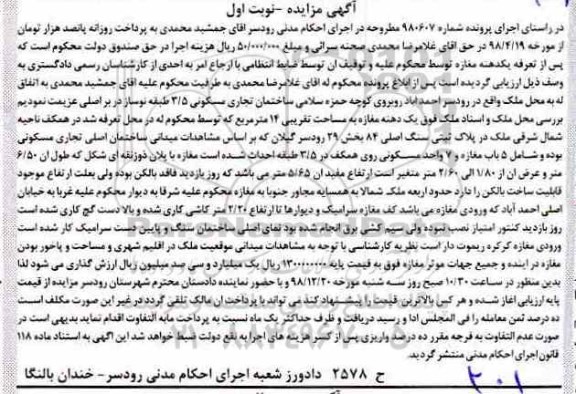 آگهی مزایده -نوبت اول
در راستای اجرای پرونده شماره ۹۸۰۶۰۷ مطروحه در اجرای احکام مدنی رودسر اقای جمشید محمدی به پرداخت روزانه پانصد هزار تومان
از مورخه ۹۸/۴/۱۹ در حق اقای غلامرضا محمدی صحنه سرائی و مبلغ ۵۰/۰۰۰/۰۰۰ ریال هزینه اجرا در حق صندوق دولت محکوم است که
پس از تعرفه یکدهنه مغازه توسط محکوم علیه و توقیف ان توسط ضابط انتظامی با ارجاع امر به احدی از کارشناسان رسمی دادگستری به
وصف ذیل ارزیابی گردیده است پس از ابلاغ پرونده محکوم له اقای غلامرضا محمدی به طرفیت محکوم علیه اقای جمشید محمدی به اتفاق
له به محل ملک واقع در رودسر احمد اباد روبروی کوچه حمزه سلامی ساختمان تجاری مسکونی ۳/۵ طبقه نوساز در بر اصلی عزیمت نمودیم
بررسی محل ملک و اسناد ملک فوق یک دهنه مغازه به مساحت تقریبی ۱۴ مترمربع که توسط محکوم له در محل تعرفه شد در همکف ناحیه
شمال شرقی ملک در پلاک ثبتی سنگ اصلی ۸۴ بخش ۲۹ رودسر گیلان که بر اساس مشاهدات میدانی ساختمان اصلی تجاری مسکونی
بوده و شامل ۵ باب مغازه و ۷ واحد مسکونی روی همکف در ۳/۵ طبقه احداث شده است مغازه با پلان ذوزنقه ای شکل که طول ان ۶/۵۰
متر و عرض ان از ۱/۸۰ الی ۲/۶۰ متر متغیر است ارتفاع مفید ان ۵/۶۵ متر می باشد که روز بازدید فاقد بالکن بوده ولی بعلت ارتفاع موجود
قابلیت ساخت بالکن را دارد حدود اربعه ملک شمالا به همسایه مجاور جنوبا به مغازه محکوم علیه شرقا به دیوار محکوم علیه غربا به خیابان
اصلی احمد آباد که ورودی مغازه می باشد کف مغازه سرامیک و دیوارها تا ارتفاع ۲/۲۰ متر کاشی کاری شده و بالا دست گچ کاری شده است
روز بازدید کنتور امتیاز نصب نبوده ولی سیم کشی برق انجام شده بود نمای اصلی ساختمان سنگ و پایین دست سرامیک کار شده است
ورودی مغازه کرکره ریموت دار است نظریه کارشناسی با توجه به مشاهدات میدانی موقعیت ملک در اقلیم شهری و مساحت و پاخور بودن
مغازه در اینده و جمیع جهات موثر مغازه فوق به قیمت پایه ۱۳۰۰۰۰۰۰۰۰ ریال یک میلیارد و سی صد میلیون ریال ارزش گذاری می شود لذا
بدین منظور در ساعت ۱۰/۳۰ صبح روز سه شنبه مورخه ۹۸/۱۲/۲۰ و با حضور نماینده دادستان محترم شهرستان رودسر مزایده از قیمت
پایه ارزیابی اغاز شده و هر کس بالاترین قیمت را پیشنهاد کند می تواند با پرداخت ان مالک تلقی گردد در غیر این صورت مکلف است
ده درصد ثمن معامله را فی المجلس ادا و رسید دریافت و ظرف حداکثر یک ماه نسبت به پرداخت مابه التفاوت اقدام نماید بدیهی است در
صورت عدم التفاوت به فرجه مقرر ده درصد واریزی پس از کسر هزینه های اجرا به نفع دولت ضبط خواهد شد این آگهی به استناد ماده ۱۱۸
قانون اجرای احکام مدنی منتشر گردید.
ح ۲۵۷۸ دادورز شعبه اجرای احکام مدنی رودسر- خندان بالنگا